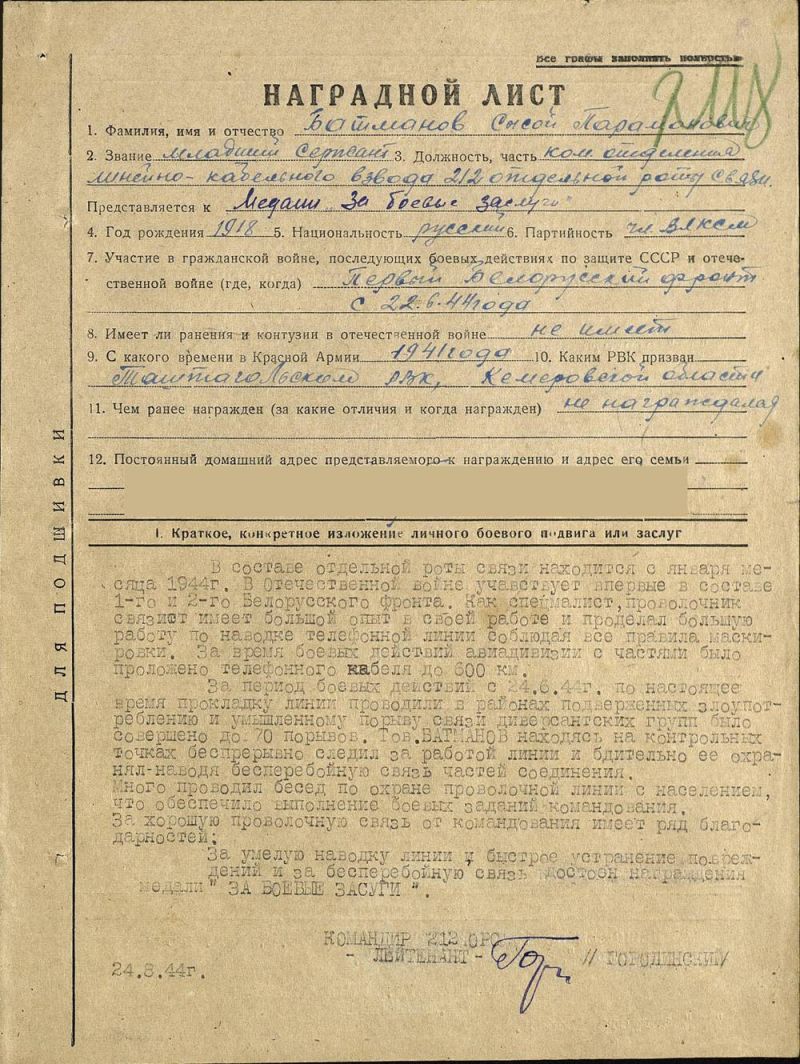 Все графы заполнять полностью
2118
НАГРАДНОЙ ЛИСТ
1. Фамилия, имя и отчество Батманов Сысой Парамонович
2. Звание младший сержант 3. Должность, часть ком. отделения
линейно-кабельного взвода 212 отдельной роты связи.
Представляется к Медали "За боевые заслуги"
4. Год рождения 1918 5. Национальность русский 6. Партийность чл. ВЛКСМ
7. Участие в гражданской войне, последующих боевых действиях по защите СССР и отече-
ственной войне (где, когда) Первый Белорусский фронт
с 22.6.44 года
8. Имеет ли ранения и контузии в отечественной войне не имеет
9. С какого времени в Красной Армии 1941 года 10. Каким РВК призван
Таштагольским РВК, Кемеровской области
11. Чем ранее награжден (за какие отличия и когда награжден) не награждался
12. Постоянный домашний адрес представляемого к награждению и адрес его семьи
I. Краткое, конкретное изложение личного боевого подвига или заслуг
В составе отдельной роты связи находится с января ме-
сяца 1944г. В Отечественной войне учавствует впервые в составе
1-го и 2-го Белорусского фронта. Как специалист, проволочник
связист имеет большой опыт в своей работе и проделал большую
работу по наводке телефонной линии соблюдая все правила маски-
ровки. За время боевых действий авиадивизии с частями было
проложено телефонного кабеля до 600 км.
За период боевых действий с 24.6.44г. по настоящее
время прокладку линии проводили в районах подверженных злоупот-
реблению и умышленному порыву связи диверсантских групп было
совершено до 70 порывов. Тов. БАТМАНОВ находясь на контрольных
точках беспрерывно следил за работой линии и бдительно ее охра-
нял-наводя бесперебойную связь частей соединения.
Много проводил бесед по охране проволочной линии с населением,
что обеспечило выполнение боевых заданий командования.
За хорошую проволочную связь от командования имеет ряд благо-
дарностей;
За умелую наводку линии и быстрое устранение повреж-
дений и за бесперебойную связь достоен награждения
медали " ЗА БОЕВЫЕ ЗАСУГИ ".
КОМАНДИР 212 ОРС
- ЛЕЙТЕНАНТ - // ГОРОДИНСКИЙ/
24.8.44г.
ДЛЯ ПОДШИВКИ